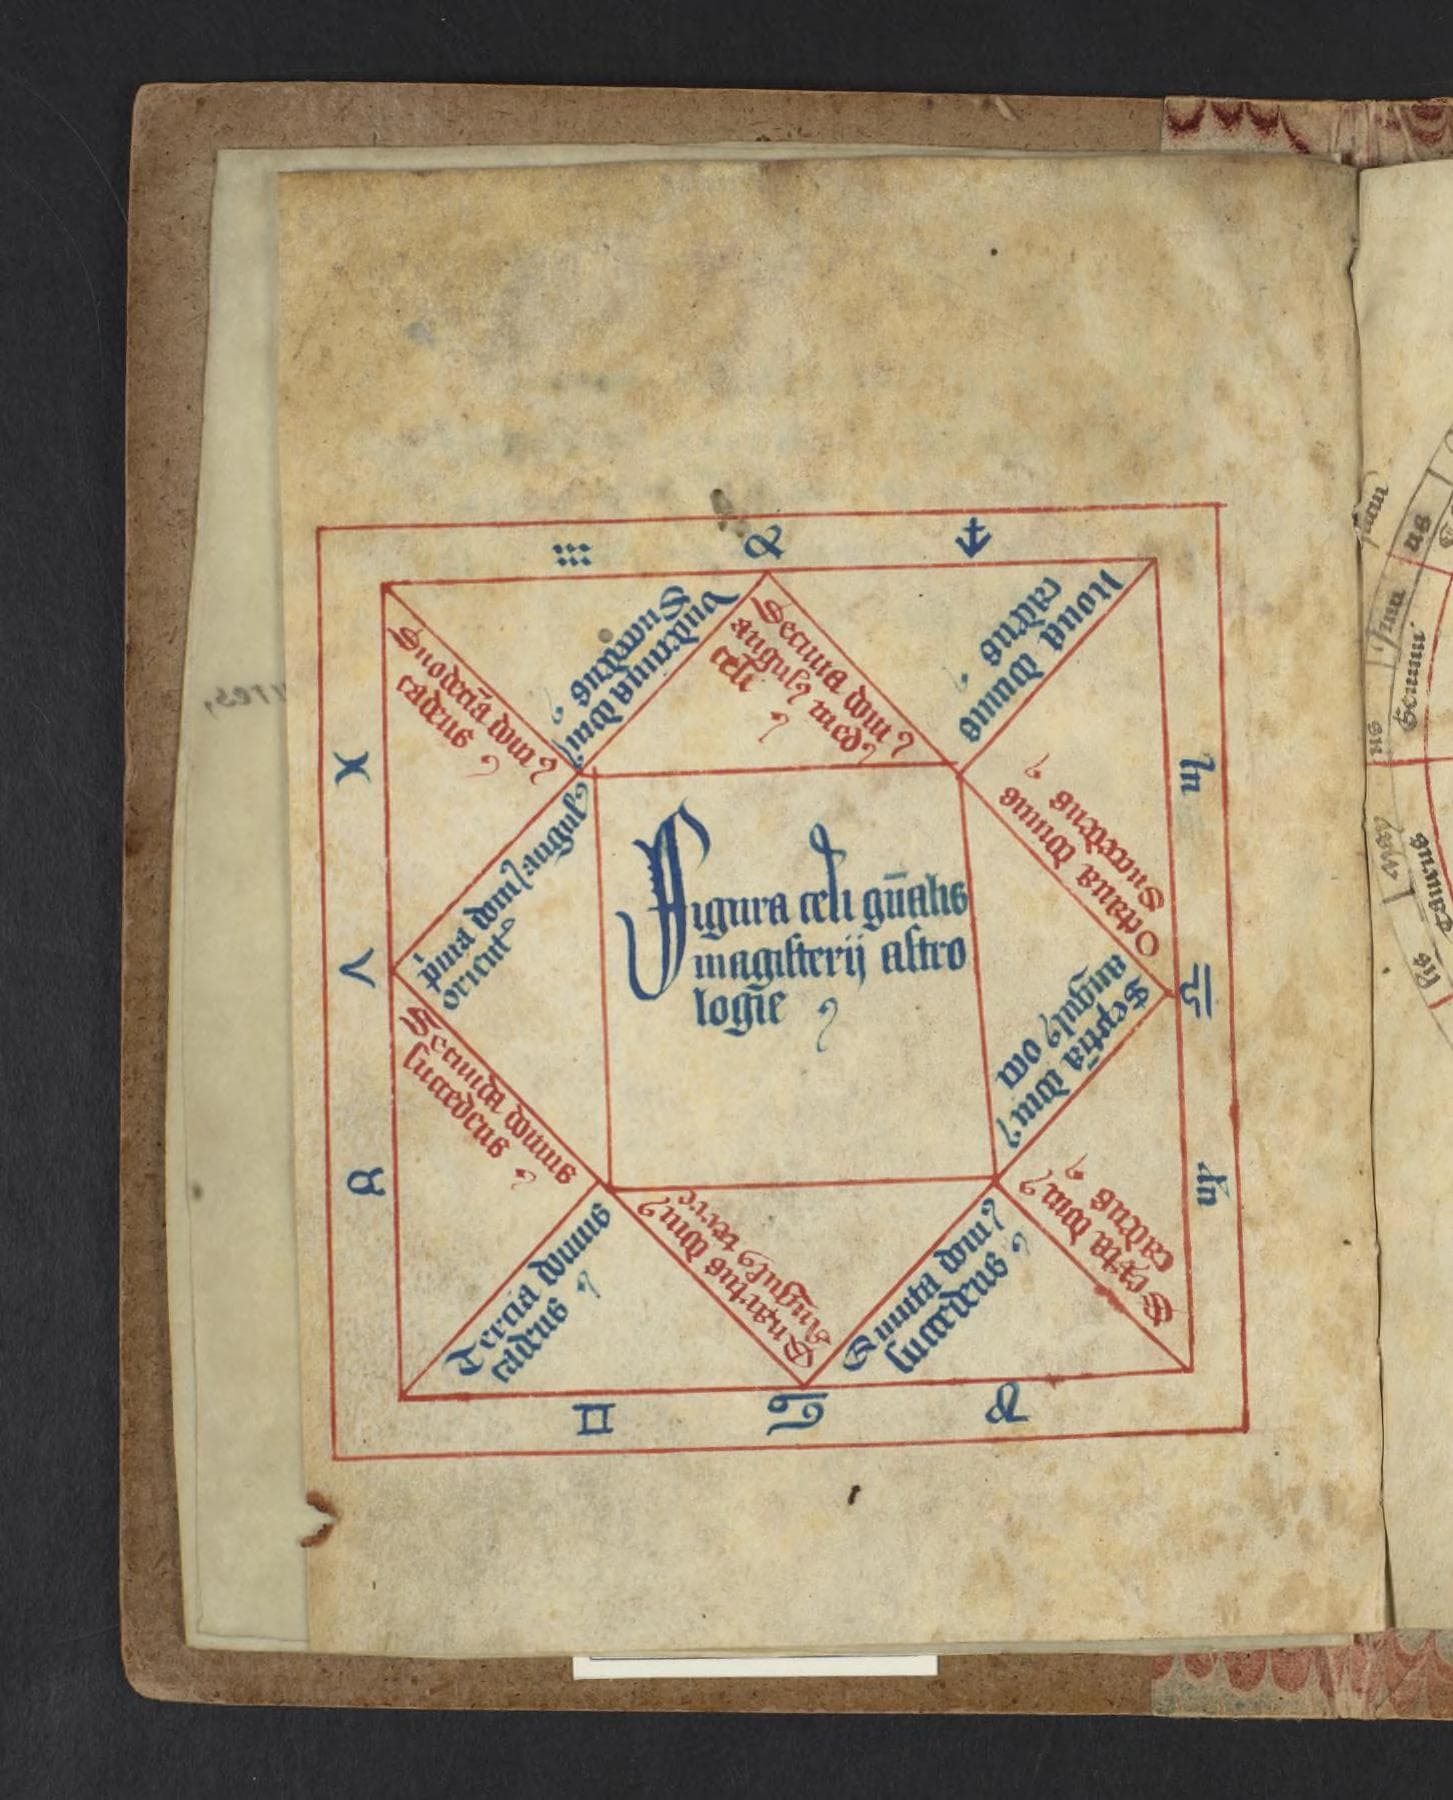 Figura celi gnalis
magisterij astro
logie
pima dom angul
orient
Secunda domus
succedens
Tercia domus
cadens
Quartus dom
angul terre
Quinta dom
succedens
Sexta dom
cadens
Septia dom
angul occi
Octava domus
Succedens
Nona domus
cadens
Decima dom
angul med
celi
Undecima dom
Succedens
Duodecia dom
cadens
♈
♉
♊
♋
♌
♍
♎
♏
♓
Gemini
Taurus